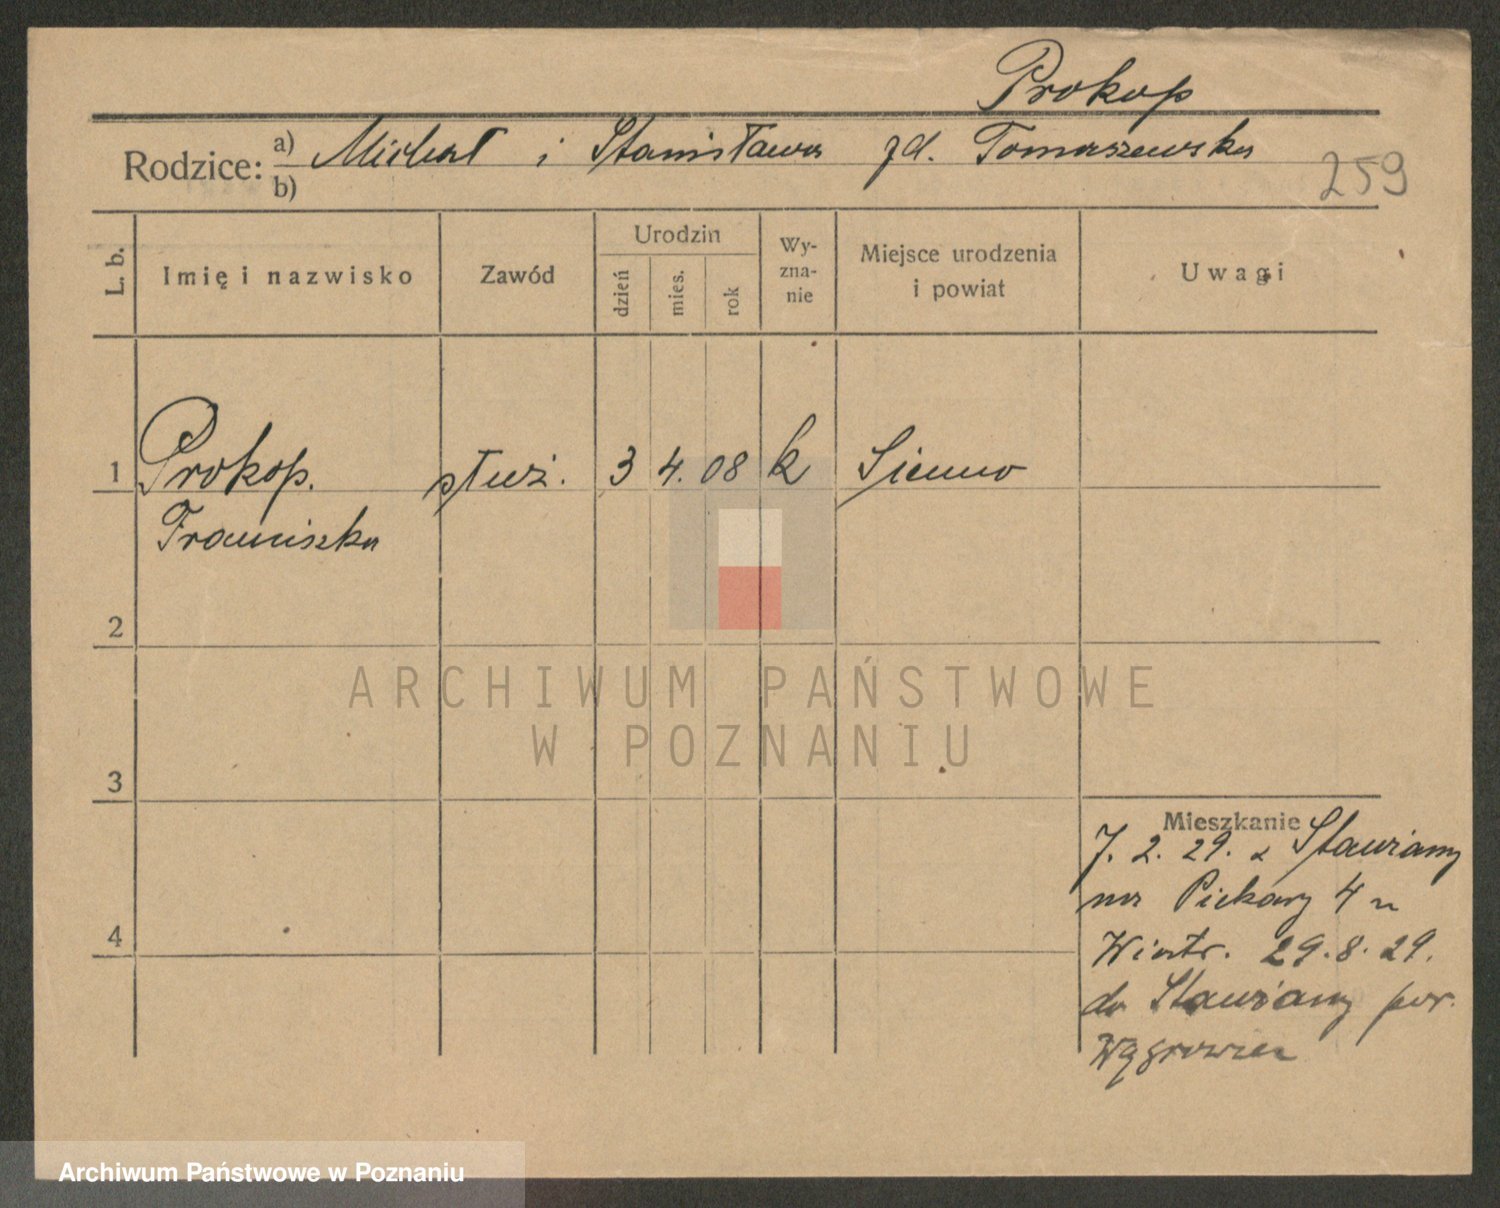 Prokop
Rodzice: a) Michał i Stanisława zd. Tomaszewska
b)
259
L. b.
Imię i nazwisko
Zawód
Urodzin
dzień
mies.
rok
Wy-
zna-
nie
Miejsce urodzenia
i powiat
Uwagi
1 Prokop. służ. 3 4. 08 k Sienno
Franciszka
2
3
4
Mieszkanie
7. 2. 29. z Stawiany
na Piekary 4 u
29. 8. 29.
do Stawiany pow.
Wągrowiec
ARCHIWUM PAŃSTWOWE
W POZNANIU
Archiwum Państwowe w Poznaniu